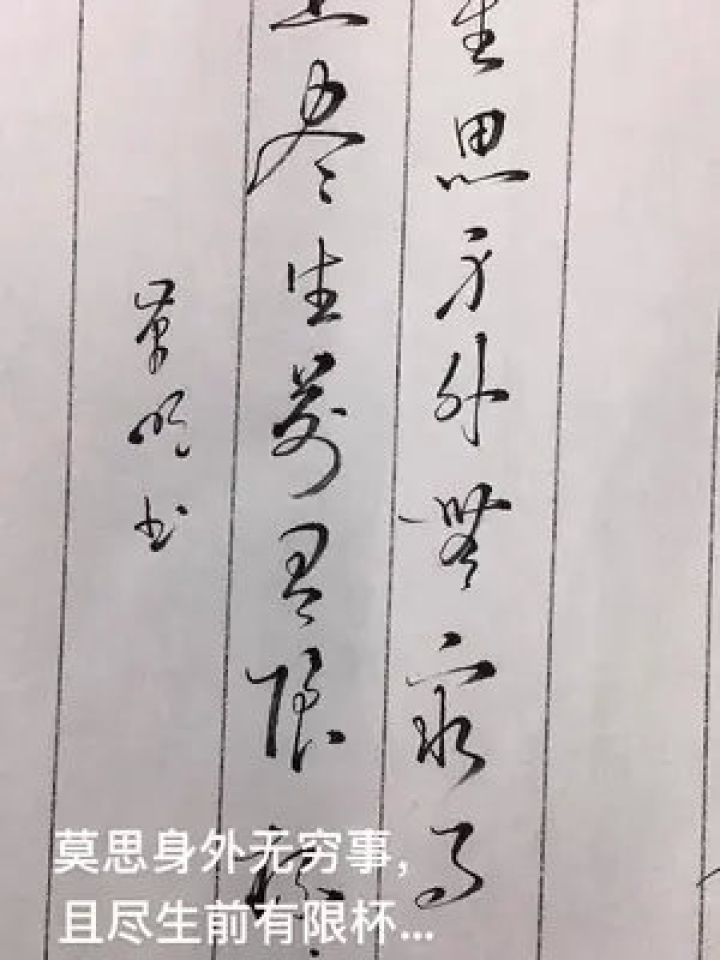 莫思身外無窮事
且尽生前有限杯
明书
莫思身外无穷事，
且尽生前有限杯...